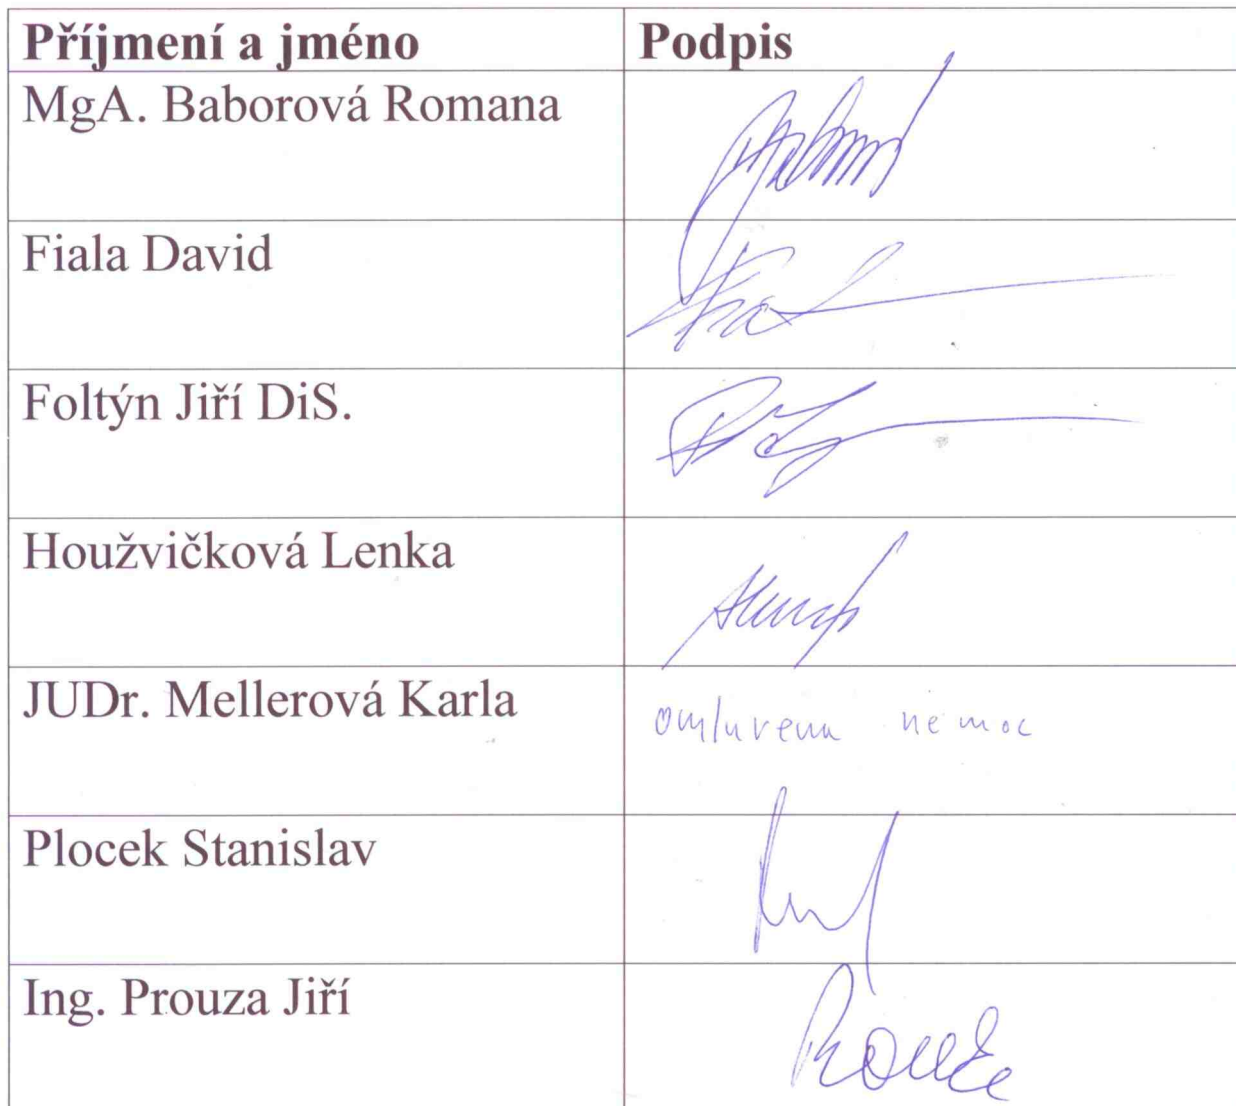 Příjmení a jméno Podpis
MgA. Baborová Romana
Fiala David
Foltýn Jiří DiS.
Houžvičková Lenka
JUDr. Mellerová Karla omluvena nemoc
Plocek Stanislav
Ing. Prouza Jiří